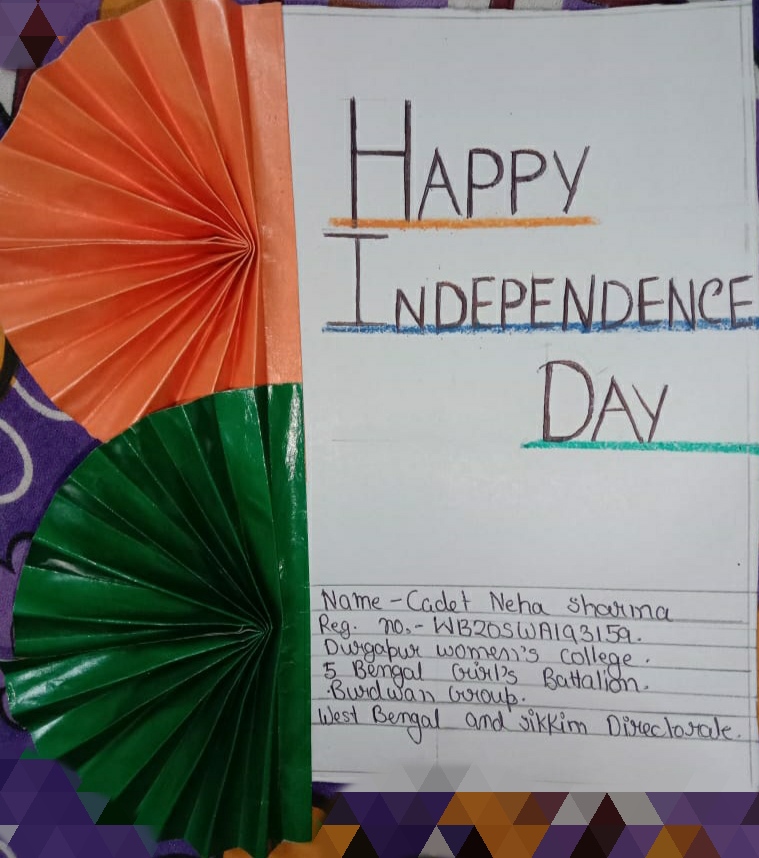 HAPPY
INDEPENDENCE
DAY
Name - Cadet Neha Sharma
Reg. no.- WB20SWA193159.
Durgapur women's college.
5 Bengal Girl's Battalion.
Burdwan Group.
West Bengal and sikkim Directorate.